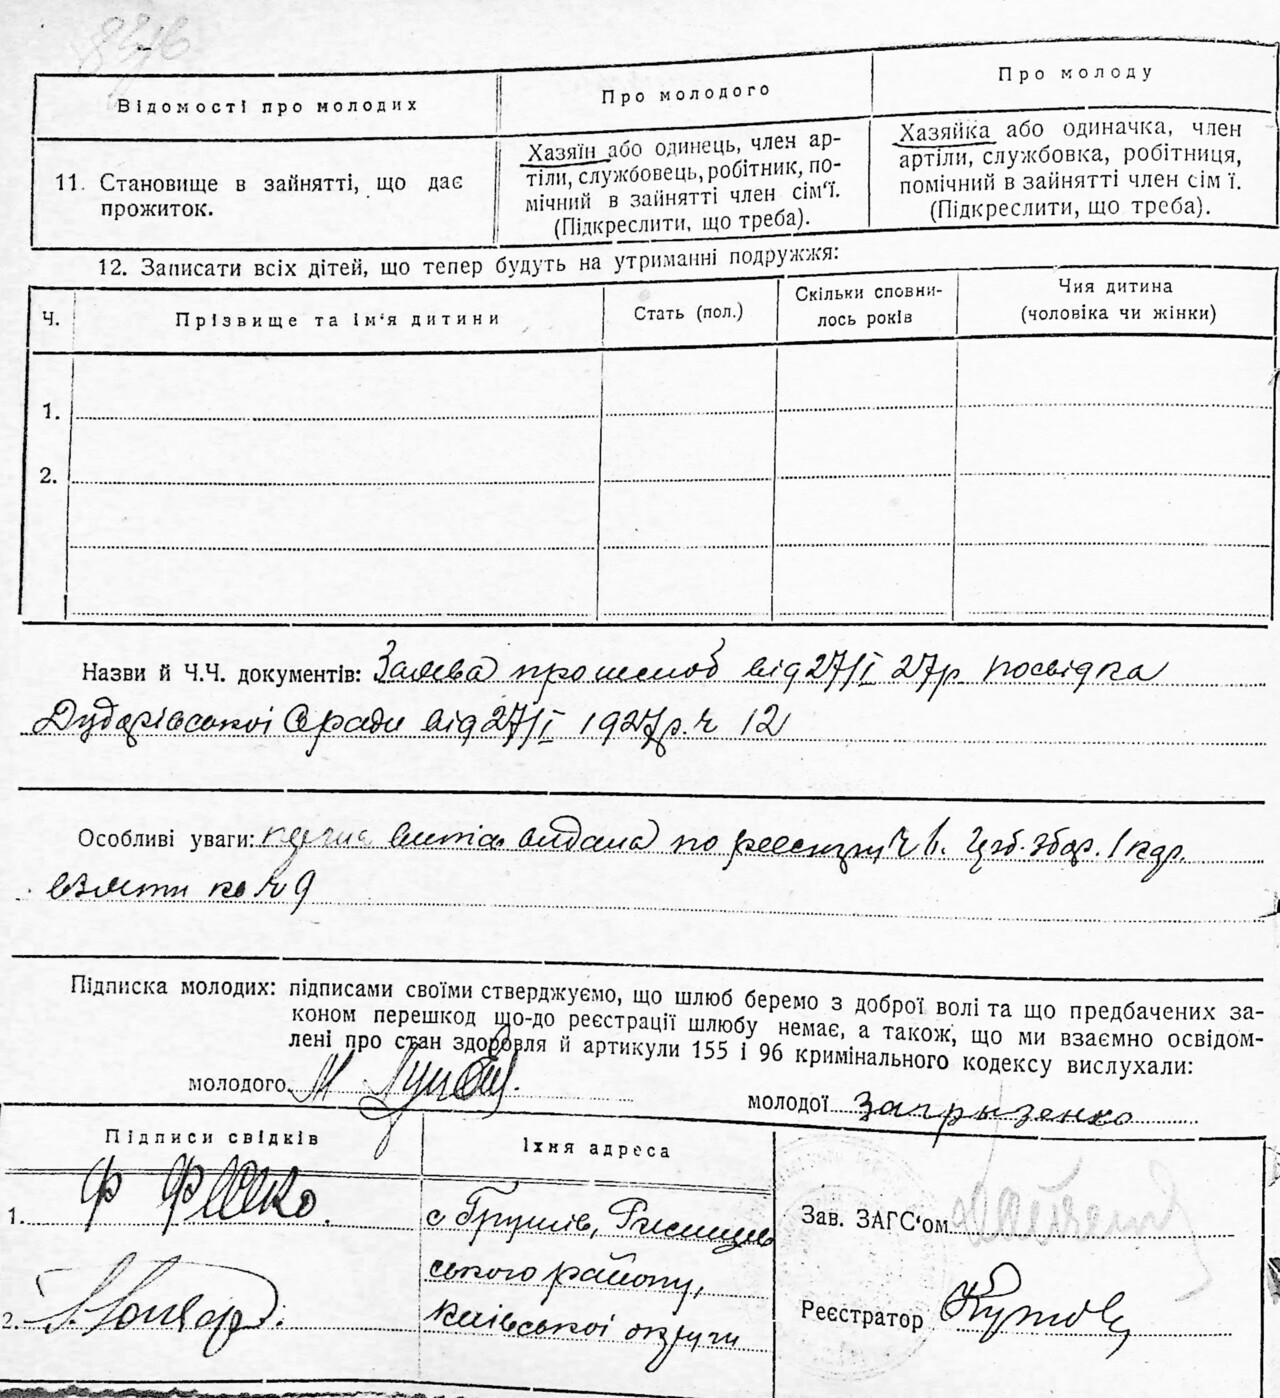 Відомості про молодих
Про молодого
Про молоду
11. Становище в зайнятті, що дає
прожиток.
Хазяїн або одинець, член ар-
тіли, службовець, робітник, по-
мічний в зайнятті член сім'ї.
(Підкреслити, що треба).
Хазяйка або одиначка, член
артіли, службовка, робітниця,
помічний в зайнятті член сім ї.
(Підкреслити, що треба).
12. Записати всіх дітей, що тепер будуть на утриманні подружжя:
Ч.
Прізвище та ім'я дитини
Стать (пол.)
Скільки сповни-
лось років
Чия дитина
(чоловіка чи жінки)
1.
2.
Назви й Ч.Ч. документів: Заява про шлюб від 27/I 27р. посвідка
Дударівської С ради від 27/I 1927р. ч 12
Особливі уваги: видана по реєстру ч
взяти по ч 9
Підписка молодих: підписами своїми стверджуємо, що шлюб беремо з доброї волі та що предбачених за-
коном перешкод що-до реєстрації шлюбу немає, а також, що ми взаємно освідом-
лені про стан здоровля й артикули 155 і 96 кримінального кодексу вислухали:
молодого М
молодої Загрызенко
Підписи свідків
Їхня адреса
1. Ф Феско.
с Грушів, Ржищів
ського району,
Київської округи
2.
Зав. ЗАГС'ом
Реєстратор